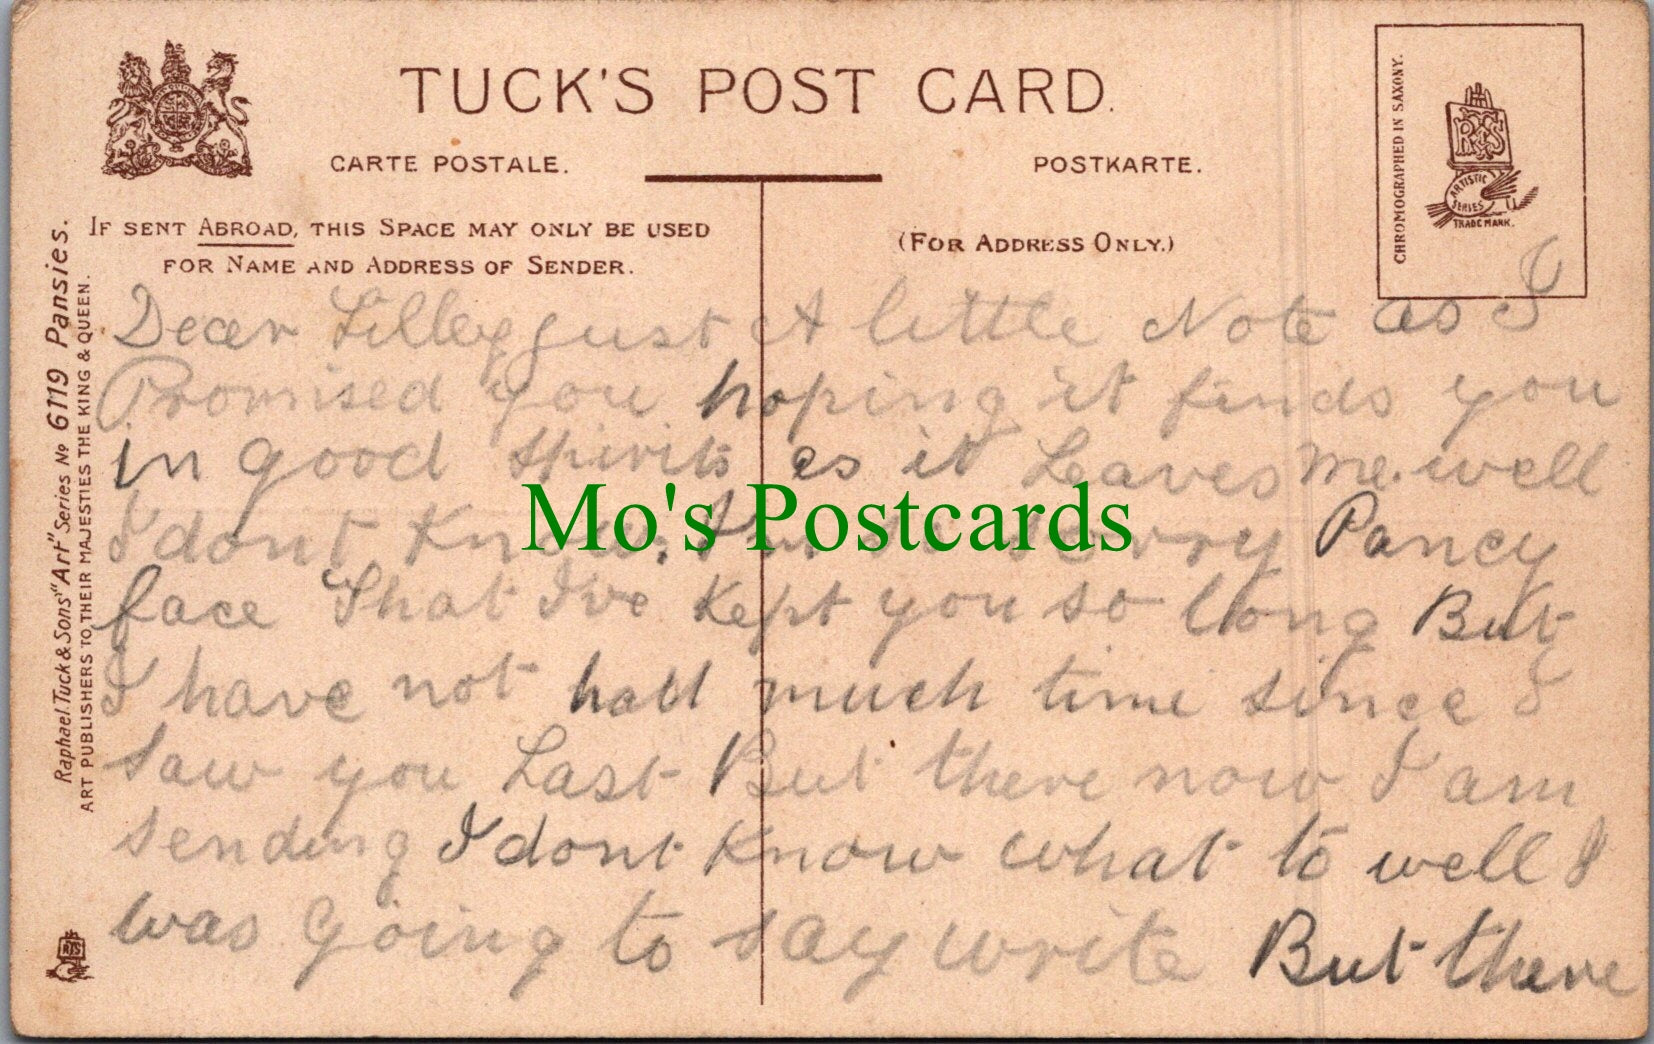 TUCK'S POST CARD.
CARTE POSTALE.
POSTKARTE.
IF SENT ABROAD, THIS SPACE MAY ONLY BE USED
FOR NAME AND ADDRESS OF SENDER.
(FOR ADDRESS ONLY.)
CHROMOGRAPHED IN SAXONY.
RTS
ARTISTIC
SERIES
TRADE MARK.
Raphael Tuck & Sons' "Art" Series No 6119 Pansies.
ART PUBLISHERS TO THEIR MAJESTIES THE KING & QUEEN.
RTS
Dear Lilley just A little Note as I
Promised you hoping it finds you
in good spirits as it Leaves me. well
I dont Know. sorry Pancy
face That I've Kept you so long But
I have not hadd much time since I
saw you Last But there now I am
sending I dont Know what to well I
was going to say write But there
Mo's Postcards